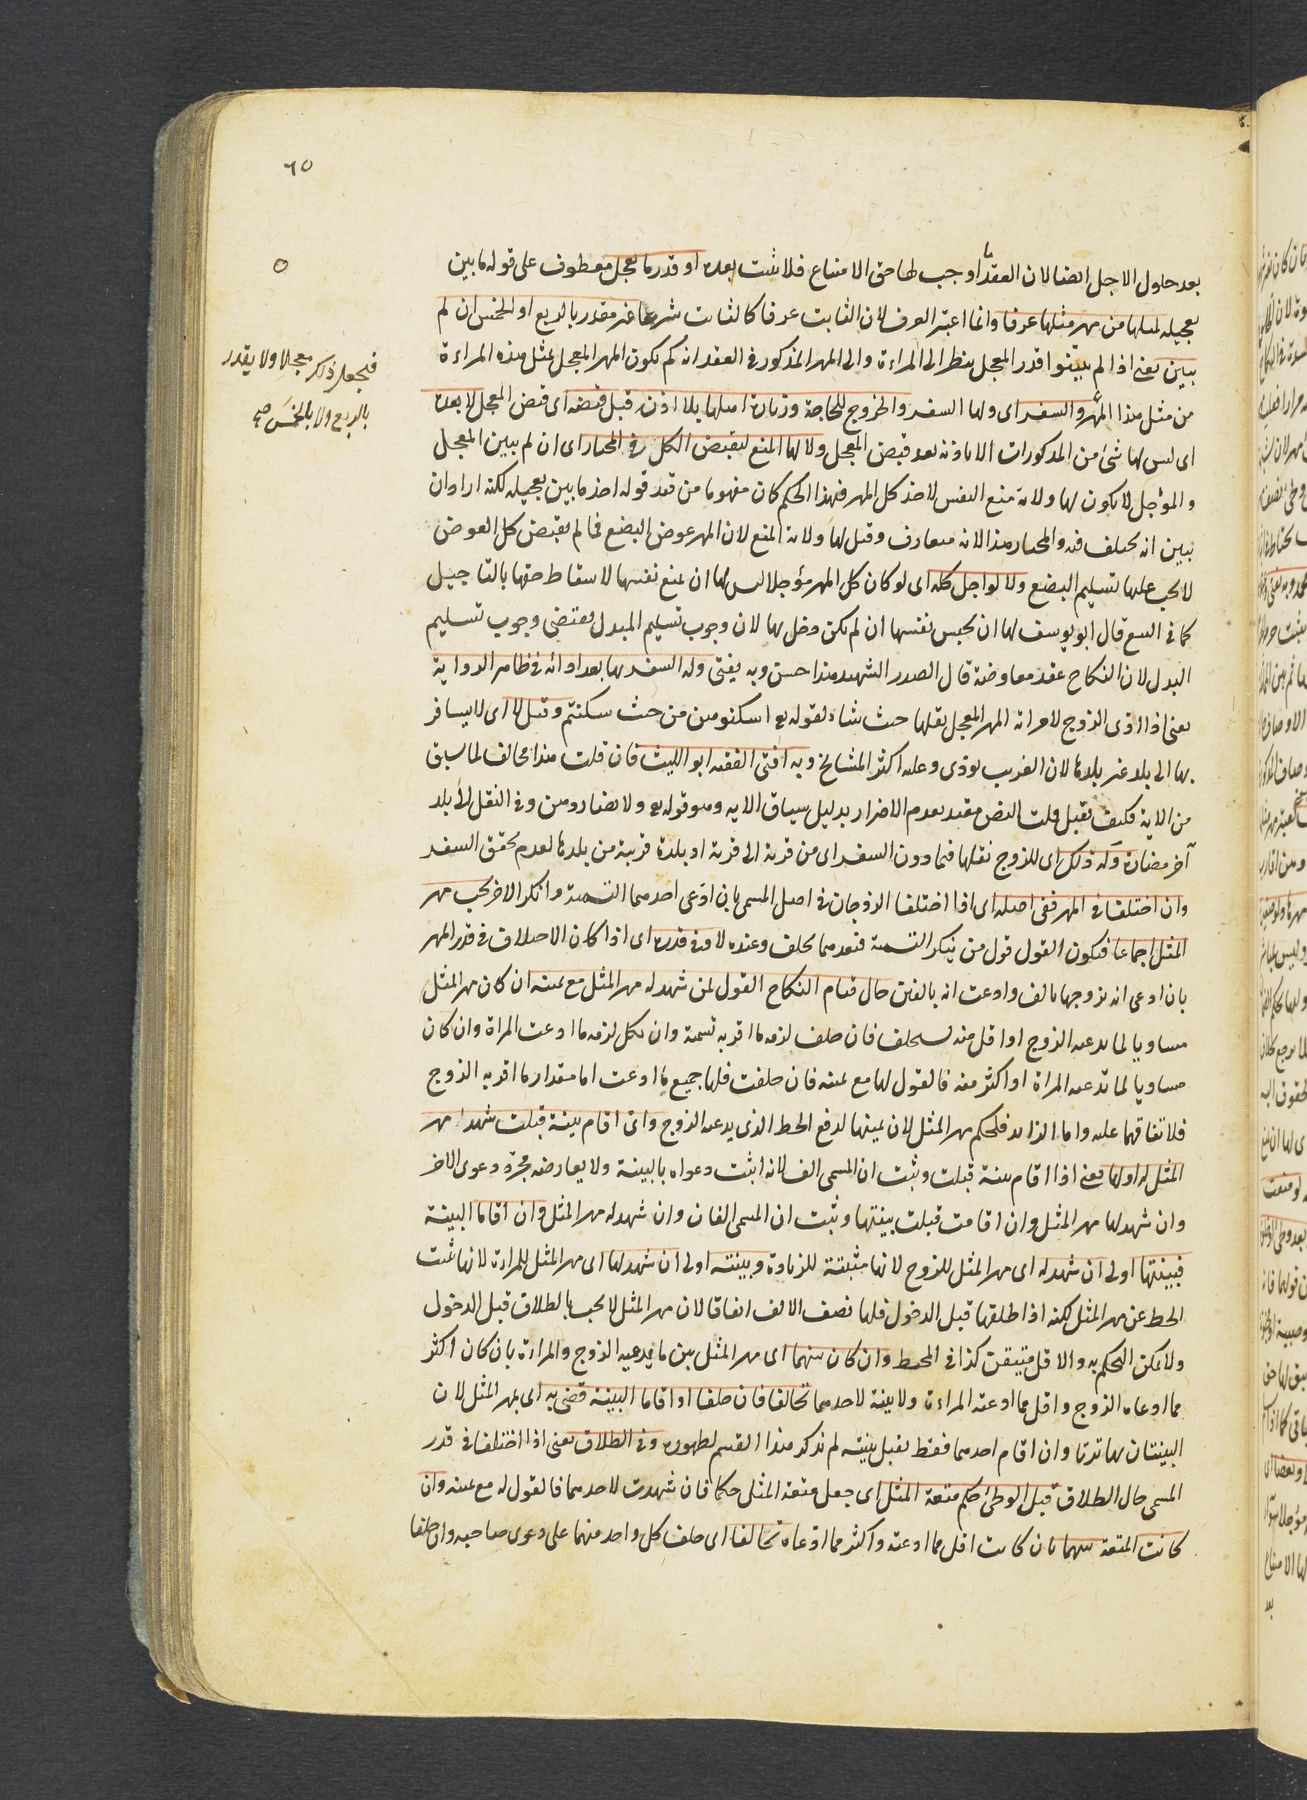 ٦٥
بعد حلول الاجل ايضا لان العقد ما اوجب لها حق الامتناع فلا يثبت بعده او قدر ما يعجل معطوف على قوله ما بين
تعجيله لمثلها من مهر مثلها عرفا وانما اعتبر العرف لان الثابت عرفا كالثابت شرعا غير مقدر بالربع او الخمس ان لم
يبين يعني اذا لم يبينوا قدر المعجل ينظر الى المراءة والى المهر المذكور في العقد انه كم يكون المهر المعجل لمثل هذه المراءة
من مثل هذا المهر والسفر اى ولها السفر والخروج للحاجة وزيارة اهلها بلا اذنه قبل قبضه اى قبض المعجل لا بعده
اى ليس لها شئ من المذكورات الا باذنه بعد قبض المعجل ولا لها المنع لقبض الكل في المختار اى ان لم يبين المعجل
والمؤجل لا يكون لها ولاية منع النفس لاخذ كل المهر فهذا الحكم كان مفهوما من قيد قوله اخذ ما بين تعجيله لكنه اراد ان
يبين انه مختلف فيه والمختار هذا لانه متعارف وقيل لها ولاية المنع لان المهر عوض البضع فما لم يقبض كل العوض
لا يجب عليها تسليم البضع ولا لو اجل كله اى لو كان كل المهر مؤجلا ليس لها ان تمنع نفسها لاسقاط حقها بالتاجيل
كما في البيع قال ابو يوسف لها ان تحبس نفسها ان لم يكن دخل بها لان وجوب تسليم المبدل يقتضى وجوب تسليم
البدل لان النكاح عقد معاوضة قال الصدر الشهيد هذا حسن وبه يفتى وله السفر بها بعد ادائه في ظاهر الرواية
يعني اذا ادى الزوج لامراته المهر المعجل ينقلها حيث شاء لقوله تع اسكنوهن من حيث سكنتم وقيل لا اى لا يسافر
بها الى بلد غير بلدها لان الغريب يوذى وعليه اكثر المشايخ وبه افتى الفقيه ابو الليث فان قلت هذا مخالف لما سبق
من الاية فكيف يقبل قلت النص مقيد بعدم الاضرار بدليل سياق الاية وهو قوله تع ولا تضاروهن وفي النقل الى بلد
آخر مضارة وله ذلك اى للزوج نقلها فيما دون السفر اى من قرية الى قرية او بلدة قريبة من بلدها لعدم تحقق السفر
وان اختلفا في المهر ففي اصله اى اذا اختلفا الزوجان في اصل المسمى بان ادعى احدهما التسمية وانكر الاخر يجب مهر
المثل اجماعا فيكون القول قول من ينكر التسمية فعندهما يحلف وعنده لا وفي قدره اى اذا كان الاختلاف في قدر المهر
بان ادعى انه تزوجها بالف وادعت انه بالفين حال قيام النكاح القول لمن شهد له مهر المثل مع يمينه ان كان مهر المثل
مساويا لما يدعيه الزوج او اقل منه يستحلف فان حلف لزمه ما اقر به تسمية وان نكل لزمه ما ادعت المراة وان كان
مساويا لما تدعيه المراة او اكثر منه فالقول لها مع يمينه فان حلفت فلها جميع ما ادعت اما مقدار ما اقر به الزوج
فلاتفاقهما عليه واما الزائد فلحكم مهر المثل لان يمينها لدفع الحط الذى يدعيه الزوج واى اقام بينة قبلت شهد مهر
المثل له او لها يعني اذا اقام بينة قبلت ويثبت ان المسمى الف لانه اثبت دعواه بالبينة ولا يعارضه مجرد دعوى الاخر
وان شهد لها مهر المثل وان اقامت قبلت بينتها ويثبت ان المسمى الفان وان شهد له مهر المثل وان اقاما البينة
فبينتها اولى ان شهد له اى مهر المثل للزوج لانها مثبتة للزيادة وبينته اولى ان شهد لها اى مهر المثل للمراءة لانها تثبت
الحط عن مهر المثل لكنه اذا طلقها قبل الدخول فلها نصف الالف اتفاقا لان مهر المثل لا يجب بالطلاق قبل الدخول
ولا يمكن التحكم به والاقل متيقن كذا في المحيط وان كان بينهما اى مهر المثل بين ما يدعيه الزوج والمراءة بان كان اكثر
مما ادعاه الزوج واقل مما ادعته المراءة ولا بينة لاحدهما تحالفا فان حلفا او اقاما البينة قضى به اى بمهر المثل لان
البينتان تهاترتا وان اقام احدهما فقط تقبل بينته لم يذكر هذا القسم لظهوره وفي الطلاق يعني اذا اختلفا في قدر
المسمى حال الطلاق قبل الوطئ حكم متعة المثل اى جعل متعة المثل حكما فان شهدت لاحدهما فالقول له مع يمينه وان
كانت المتعة بينهما بان كانت اقل مما ادعته واكثر مما ادعاه تحالفا اى حلف كل واحد منهما على دعوى صاحبه وان حلفا
فيجعل ذكر معجلا ولا يقدر
بالربع ولا بالخمس صح